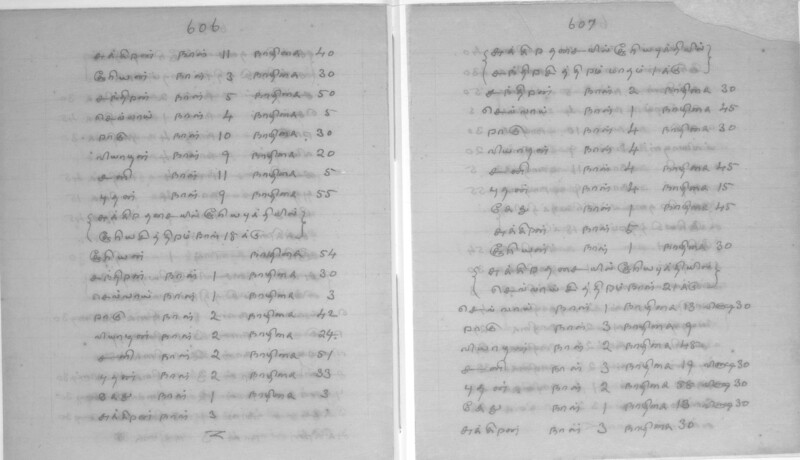 606
சுக்கிரன் நாள் 11 நாழிகை 40
சூரியன் நாள் 3 நாழிகை 30
சந்திரன் நாள் 5 நாழிகை 50
செவ்வாய் நாள் 4 நாழிகை 5
ராகு நாள் 10 நாழிகை 30
வியாழன் நாள் 9 நாழிகை 20
சனி நாள் 11 நாழிகை 5
புதன் நாள் 9 நாழிகை 55
சுக்கிர தசையில் சூரியபுத்தியில்
சூரியசூத்திரம் நாள் 18க்கு
சூரியன் நாழிகை 54
சந்திரன் நாள் 1 நாழிகை 30
செவ்வாய் நாள் 1 நாழிகை 3
ராகு நாள் 2 நாழிகை 42
வியாழன் நாள் 2 நாழிகை 24
சனி நாள் 2 நாழிகை 51
புதன் நாள் 2 நாழிகை 33
கேது நாள் 1 நாழிகை 3
சுக்கிரன் நாள் 3
607
சுக்கிர தசையில் சூரியபுத்தியில்
சந்திரசூத்திரம் மாதம் 1க்கு
சந்திரன் நாள் 2 நாழிகை 30
செவ்வாய் நாள் 1 நாழிகை 45
ராகு நாள் 4 நாழிகை 30
வியாழன் நாள் 4
சனி நாள் 4 நாழிகை 45
புதன் நாள் 4 நாழிகை 15
கேது நாள் 1 நாழிகை 45
சுக்கிரன் நாள் 5
சூரியன் நாள் 1 நாழிகை 30
சுக்கிர தசையில் சூரியபுத்தியில்
செவ்வாய்சூத்திரம் நாள் 21க்கு
செவ்வாய் நாள் 1 நாழிகை 13 வினாடி 30
ராகு நாள் 3 நாழிகை 9
வியாழன் நாள் 2 நாழிகை 48
சனி நாள் 3 நாழிகை 19 வினாடி 30
புதன் நாள் 2 நாழிகை 58 வினாடி 30
கேது நாள் 1 நாழிகை 13 வினாடி 30
சுக்கிரன் நாள் 3 நாழிகை 30